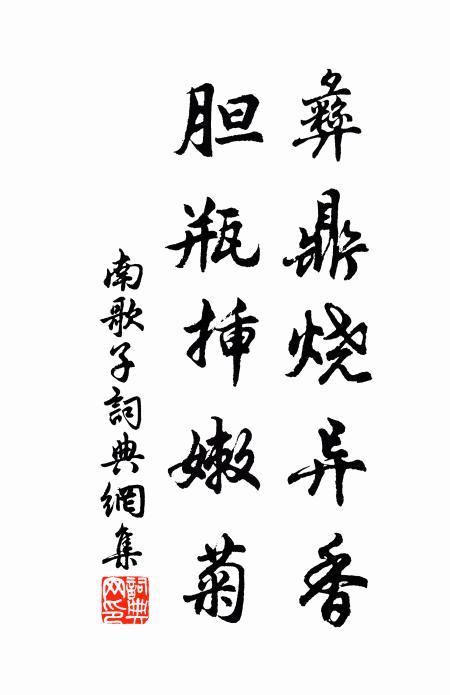 彝鼎烧异香
胆瓶挿嫩菊
南歌子詞典網集
詞典网印